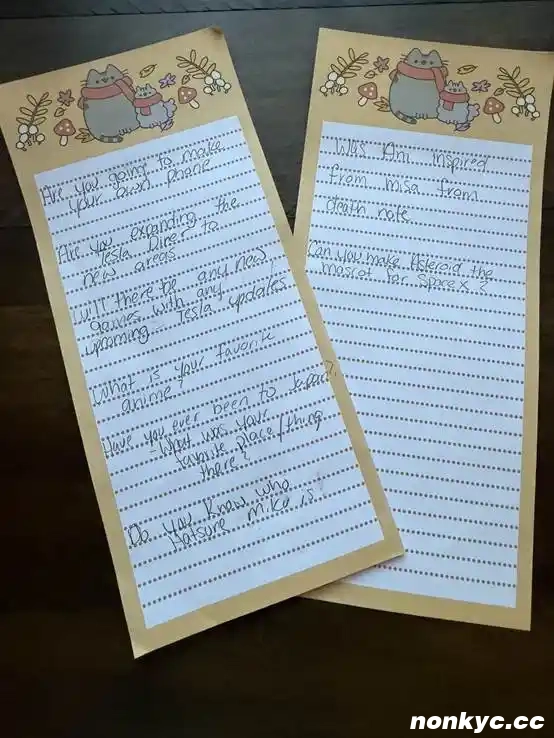 Are you going to make
your own phone
Are you expanding the
Tesla Diner to
new areas
Will there be any new
games with any
upcoming Tesla updates
What is your favorite
anime?
Have you ever been to Japan?
- What was your
favorite place/thing
there?
Do you know who
Hatsune miku is
Was Ani inspired
from misa from
death note
Can you make Asteroid the
mascot for SpaceX?
nonkyc.cc